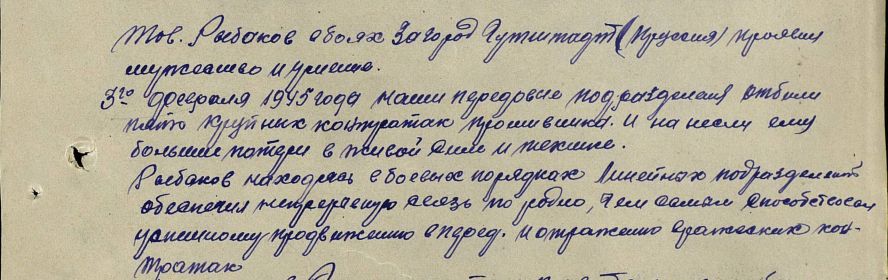 Тов. Рыбаков в боях за город Гутштадт (Пруссия) проявил
мужество и умение.
3го февраля 1945 года наши передовые подразделения отбили
пять крупных контратак противника. И нанесли ему
большие потери в живой силе и технике.
Рыбаков находясь в боевых порядках линейных подразделений
обеспечил непрерывную связь по радио, чем самым способствовал
успешному продвижению вперед. и отражению вражеских кон-
тратак